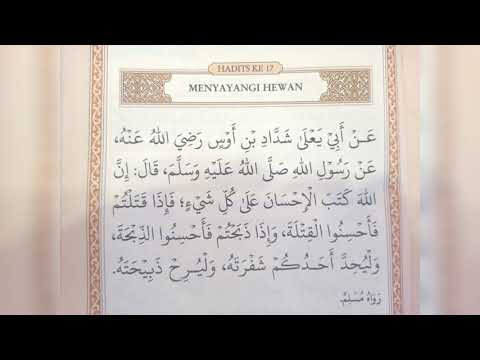 HADITS KE 17
MENYAYANGI HEWAN
عَنْ أَبِيْ يَعْلَى شَدَّادِ بْنِ أَوْسٍ رَضِيَ اللهُ عَنْهُ،
عَنْ رَسُوْلِ اللهِ صَلَّى اللهُ عَلَيْهِ وَسَلَّمَ، قَالَ: إِنَّ
اللهَ كَتَبَ الْإِحْسَانَ عَلَى كُلِّ شَيْءٍ؛ فَإِذَا قَتَلْتُمْ
فَأَحْسِنُوا الْقِتْلَةَ، وَإِذَا ذَبَحْتُمْ فَأَحْسِنُوا الذِّبْحَةَ،
وَلْيُحِدَّ أَحَدُكُمْ شَفْرَتَهُ، وَلْيُرِحْ ذَبِيْحَتَهُ.
رَوَاهُ مُسْلِمٌ.